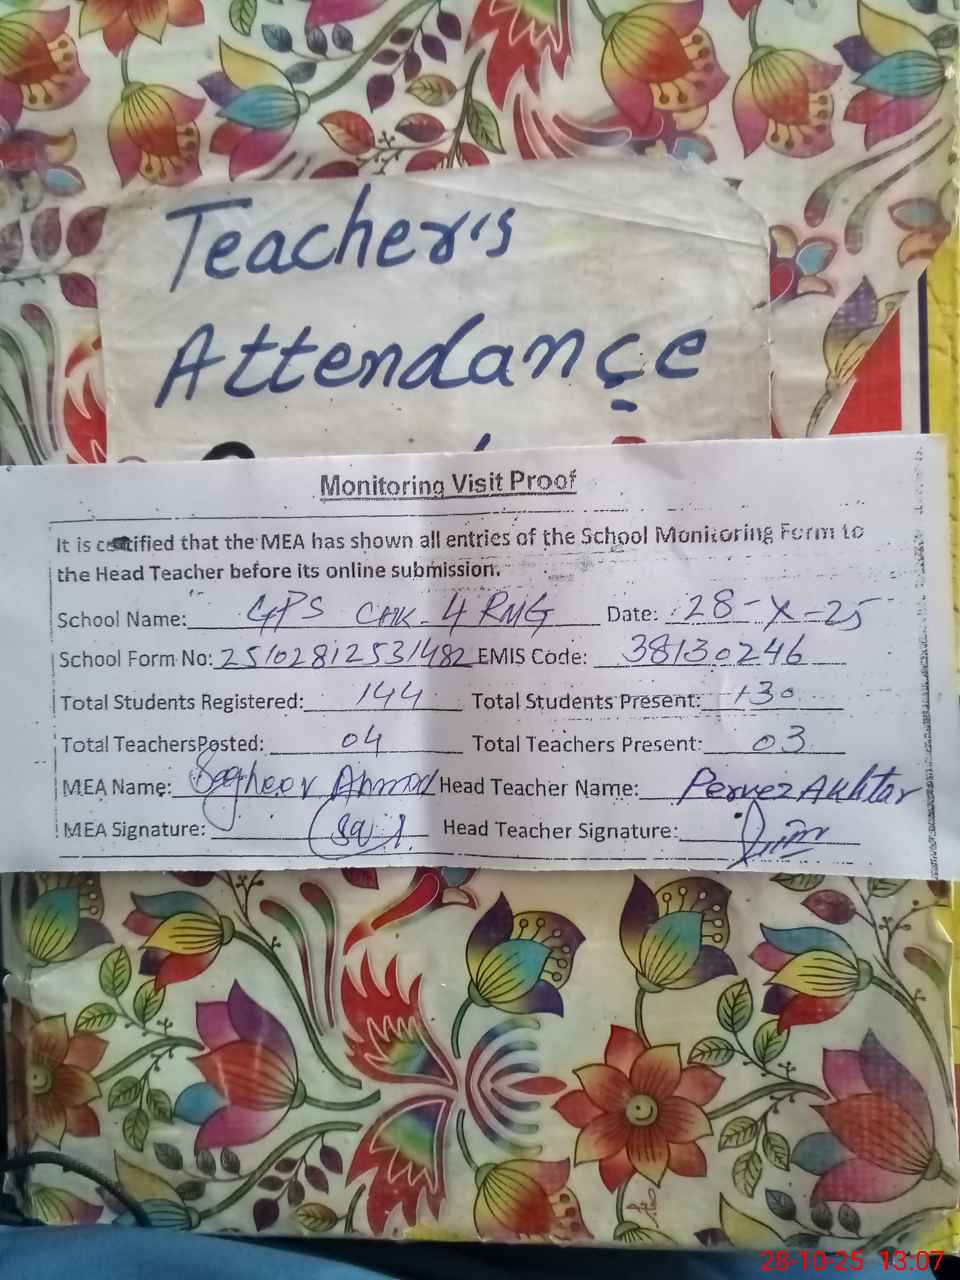 Teacher's
Attendance
Monitoring Visit Proof
It is certified that the MEA has shown all entries of the School Monitoring Form to
the Head Teacher before its online submission.
School Name: GPS CHK-4 RMG Date: 28-X-25
School Form No: 25102812531482 EMIS Code: 38130246
Total Students Registered: 144 Total Students Present: 130
Total TeachersPosted: 04 Total Teachers Present: 03
MEA Name: Sagheer Ahmad Head Teacher Name: Pervez Akhtar
MEA Signature: Head Teacher Signature:
28-10-25 13:07